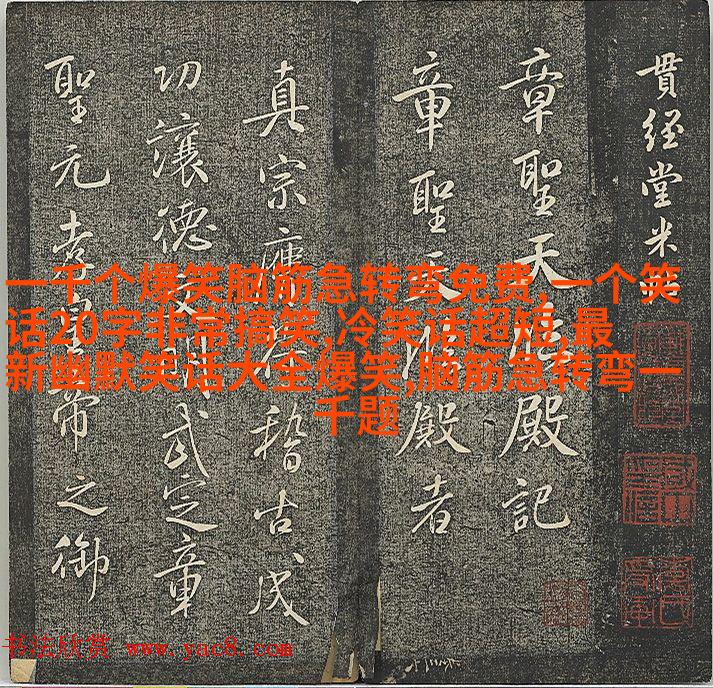 貫經堂米
章聖天臨殿記
章聖天臨殿者
真宗膺稽古成
功讓德武定章
聖元孝皇帝之御
一千个爆笑脑筋急转弯免费,一个笑
话20字非常搞笑,冷笑话超短,最
新幽默笑话大全爆笑,脑筋急转弯一
千题
书法欣赏 www.yac8.com